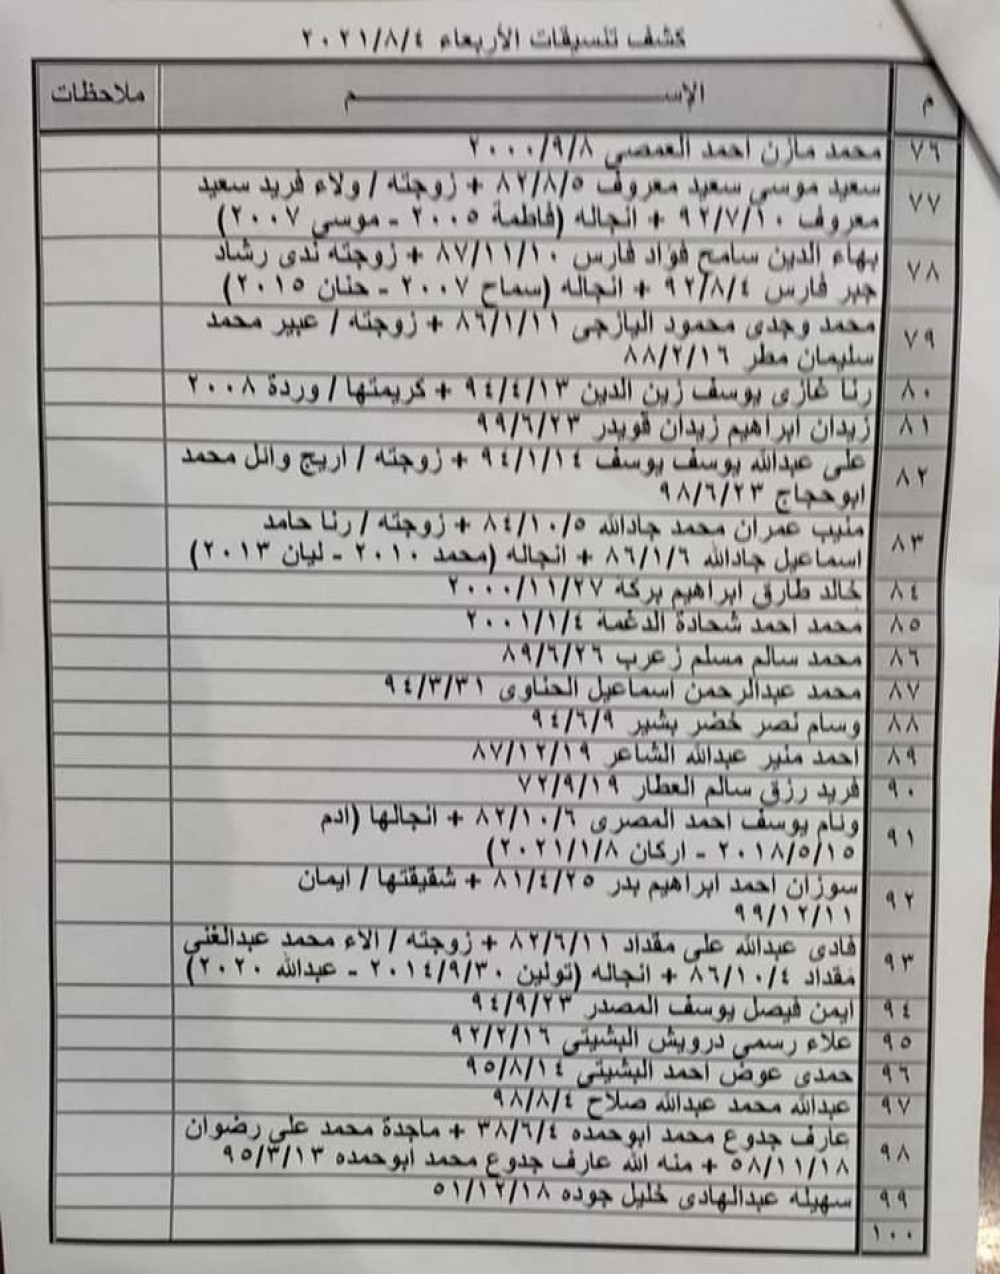 كشف تنسيقات الأربعاء ٢٠٢١/٨/٤
م الإســـــــــــــــم ملاحظات
٧٦ محمد مازن احمد العمصي ٢٠٠٠/٩/٨
٧٧ سعيد موسى سعيد معروف ٨٢/٨/٥ + زوجته / ولاء فريد سعيد
معروف ٩٢/٧/١٠ + انجاله (فاطمة ٢٠٠٥ - موسى ٢٠٠٧)
٧٨ بهاء الدين سامح فؤاد فارس ٨٧/١١/١٠ + زوجته ندى رشاد
جبر فارس ٩٢/٨/٤ + انجاله (سماح ٢٠٠٧ - حنان ٢٠١٥)
٧٩ محمد وجدى محمود اليازجى ٨٦/١/١١ + زوجته / عبير محمد
سليمان مطر ٨٨/٢/١٦
٨٠ رنا غازى يوسف زين الدين ٩٤/٤/١٣ + كريمتها / وردة ٢٠٠٨
٨١ زيدان ابراهيم زيدان قويدر ٩٩/٦/٢٣
٨٢ على عبدالله يوسف يوسف ٩٤/١/١٤ + زوجته / اريج وائل محمد
ابوحجاج ٩٨/٦/٢٣
٨٣ منيب عمران محمد جادالله ٨٤/١٠/٥ + زوجته / رنا حامد
اسماعيل جادالله ٨٦/١/٦ + انجاله (محمد ٢٠١٠ - ليان ٢٠١٣)
٨٤ خالد طارق ابراهيم بركة ٢٠٠٠/١١/٢٧
٨٥ محمد احمد شحادة الدغمة ٢٠٠١/١/٤
٨٦ محمد سالم مسلم زعرب ٨٩/٦/٢٦
٨٧ محمد عبدالرحمن اسماعيل الحناوى ٩٤/٣/٣١
٨٨ وسام نصر خضر بشير ٩٤/٦/٩
٨٩ احمد منير عبدالله الشاعر ٨٧/١٢/١٩
٩٠ فريد رزق سالم العطار ٧٢/٩/١٩
٩١ وئام يوسف احمد المصرى ٨٢/١٠/٦ + انجالها (ادم
٢٠١٨/٥/١٥ - اركان ٢٠٢١/١/٨)
٩٢ سوزان احمد ابراهيم بدر ٨١/٤/٢٥ + شقيقتها / ايمان
٩٩/١٢/١١
٩٣ فادى عبدالله على مقداد ٨٢/٦/١١ + زوجته / الاء محمد عبدالغنى
مقداد ٨٦/١٠/٤ + انجاله (تولين ٢٠١٤/٩/٣٠ - عبدالله ٢٠٢٠)
٩٤ ايمن فيصل يوسف المصدر ٩٤/٩/٢٣
٩٥ علاء رسمى درويش البشيتى ٩٢/٢/١٦
٩٦ حمدى عوض احمد البشيتى ٩٥/٨/١٤
٩٧ عبدالله محمد عبدالله صلاح ٩٨/٨/٤
٩٨ عارف جدوع محمد ابوحمده ٣٨/٦/٤ + ماجدة محمد على رضوان
٥٨/١١/١٨ + منه الله عارف جدوع محمد ابوحمده ٩٥/٣/١٣
٩٩ سهيله عبدالهادى خليل جوده ٥١/١٢/١٨
١٠٠